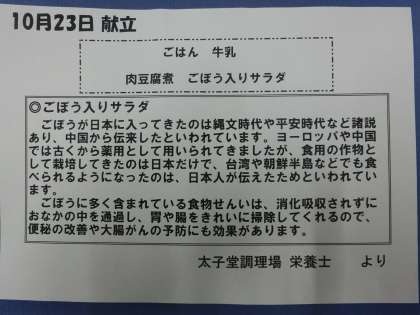 10月23日 献立
ごはん 牛乳
肉豆腐煮 ごぼう入りサラダ
◎ごぼう入りサラダ
ごぼうが日本に入ってきたのは縄文時代や平安時代など諸説
あり、中国から伝来したといわれています。ヨーロッパや中国
では古くから薬用として用いられてきましたが、食用の作物と
して栽培してきたのは日本だけで、台湾や朝鮮半島などでも食
べられるようになったのは、日本人が伝えたためといわれてい
ます。
ごぼうに多く含まれている食物せんいは、消化吸収されずに
おなかの中を通過し、胃や腸をきれいに掃除してくれるので、
便秘の改善や大腸がんの予防にも効果があります。
太子堂調理場 栄養士 より